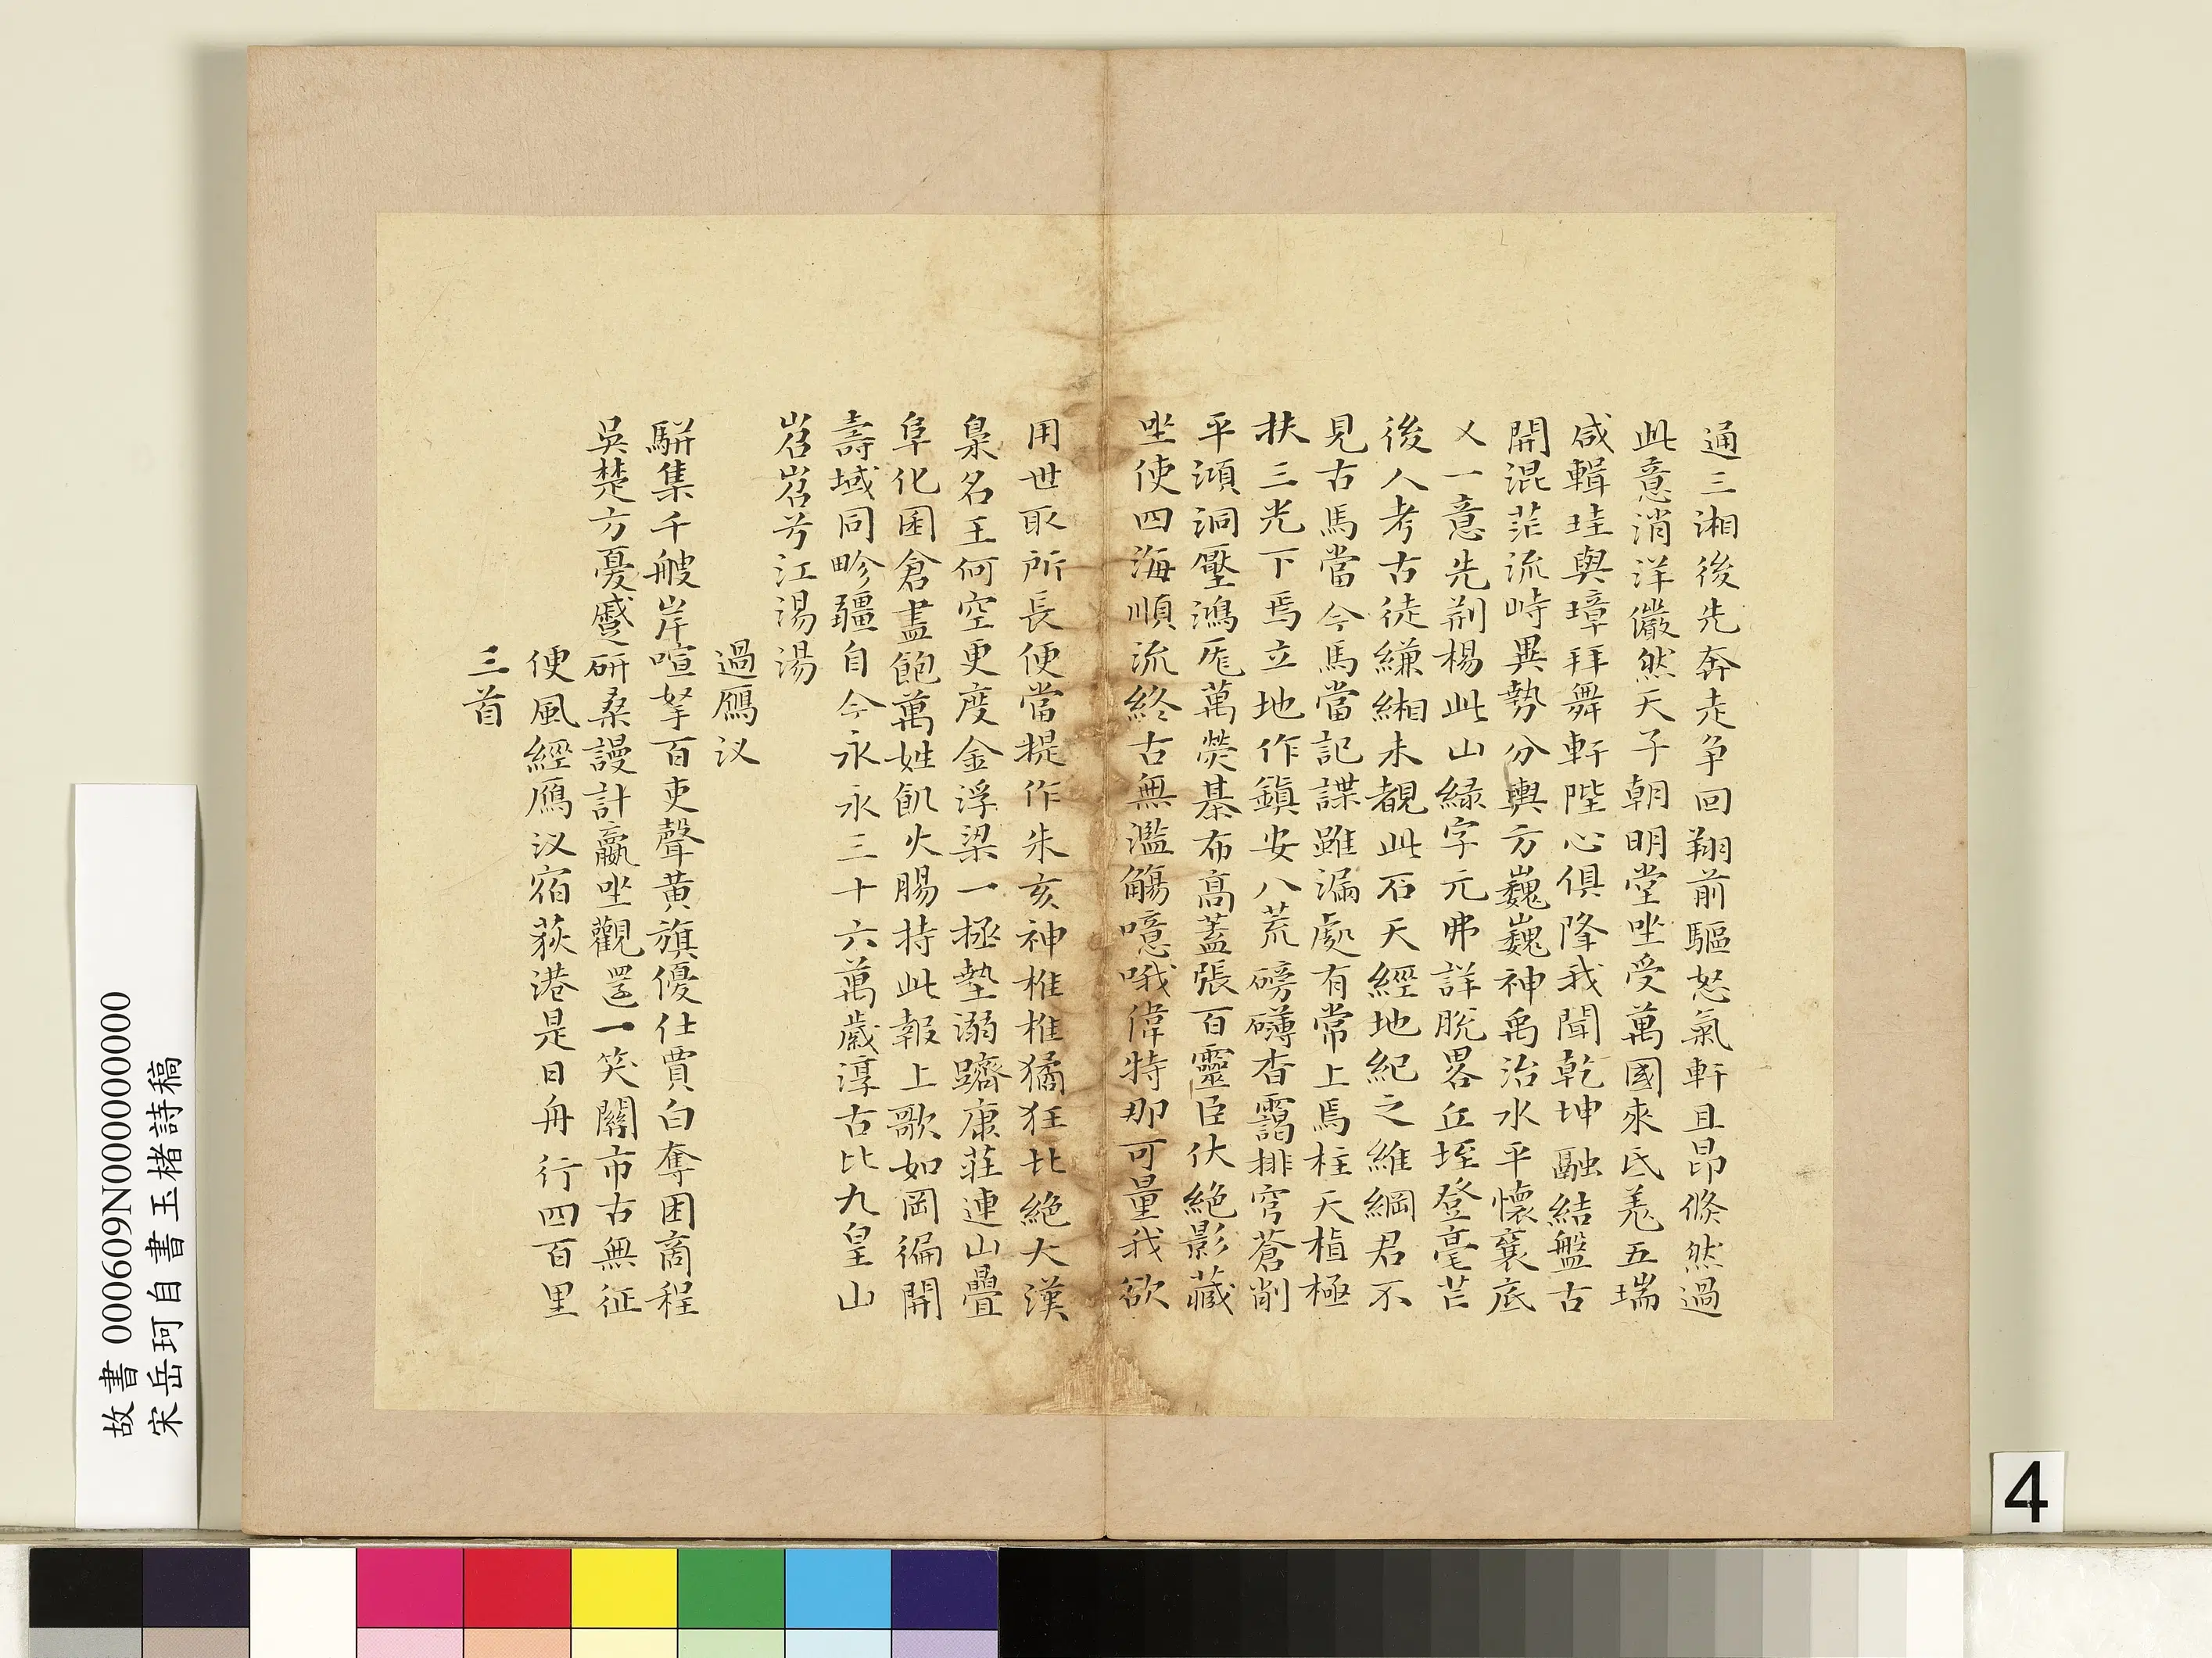 通三湘後先奔走争回翔前驅怒氣軒且昂倐然過
此意消洋儼然天子朝明堂坐受萬國來氐羗五瑞
咸輯珪與璋拜舞軒陛心俱降我聞乾坤融結盤古
開混茫流峙異勢分輿方巍巍神禹治水平懷襄底
乂一意先荆楊此山緑字元弗詳脫畧丘垤登毫芒
後人考古徒縑緗未覩此石天經地紀之維綱君不
見古馬當今馬當記諜雖漏處有常上焉柱天植極
扶三光下焉立地作鎮安八荒磅礴杳靄排穹蒼削
平澒洞壓鴻厖萬熒棊布高蓋張百靈臣伏絶影藏
坐使四海順流終古無濫觴噫哦偉特那可量我欲
用世取所長便當提作朱亥神椎椎獝狂北絶大漠
梟名王何空更度金浮梁一拯墊溺躋康莊連山疊
阜化囷倉盡飽萬姓飢火腸持此報上歌如岡徧開
壽域同畛疆自今永永三十六萬歲淳古比九皇山
岧岧兮江湯湯
過鴈汊
駢集千艘岸喧拏百吏聲黄旗優仕賈白奪困商程
吳楚方憂蹙研桑謾計贏坐觀還一笑關市古無征
便風經鴈汊宿荻港是日舟行四百里
三首
故書000609N000000000
宋岳珂自書玉楮詩稿
4